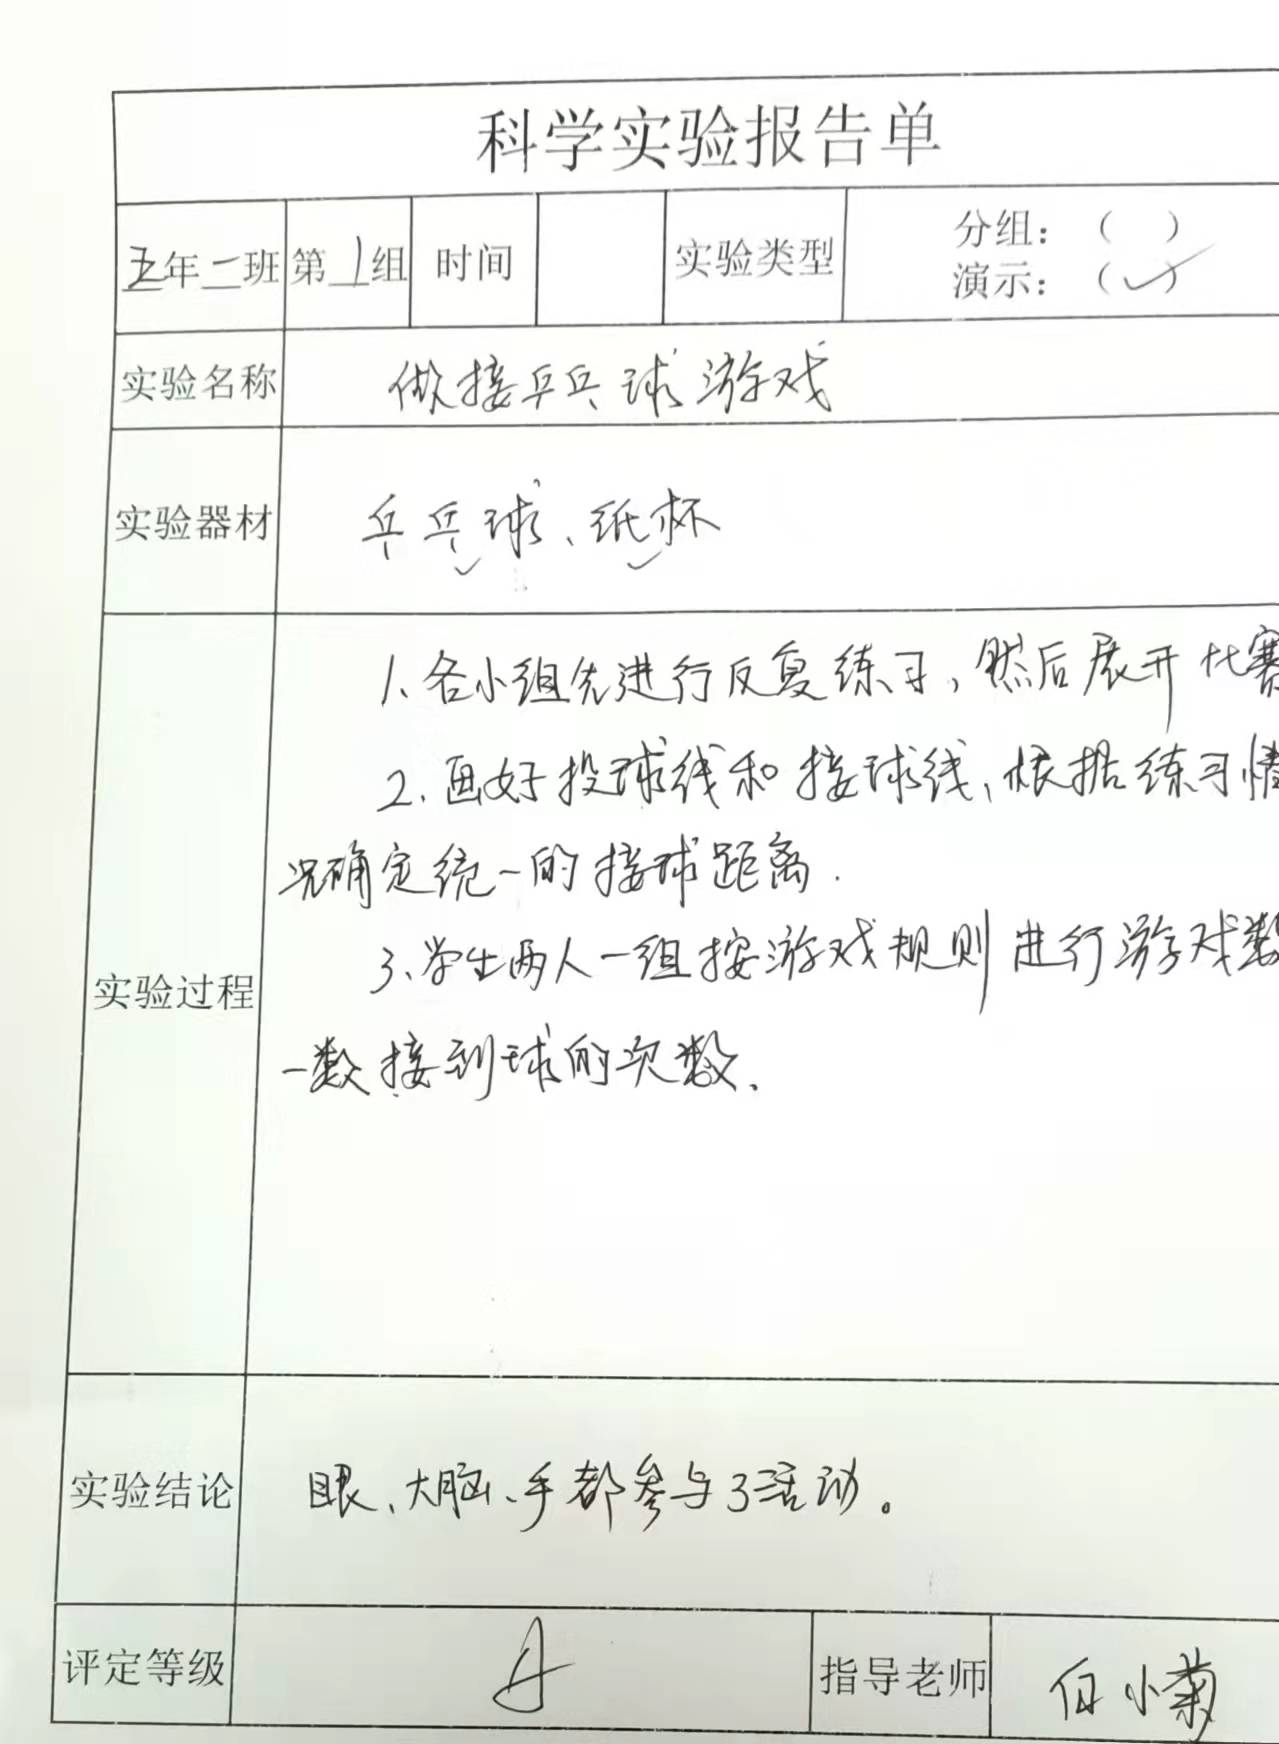 科学实验报告单
五年二班 第1组 时间 实验类型 分组：（ ）
演示：（✓）
实验名称 做接乒乓球游戏
实验器材 乒乓球、纸杯
1、各小组先进行反复练习，然后展开比赛
2、画好投球线和接球线，根据练习情
况确定统一的接球距离.
3、学生两人一组按游戏规则进行游戏数
实验过程
一数接到球的次数.
实验结论 眼、大脑、手都参与了活动。
评定等级 A 指导老师 白小菊